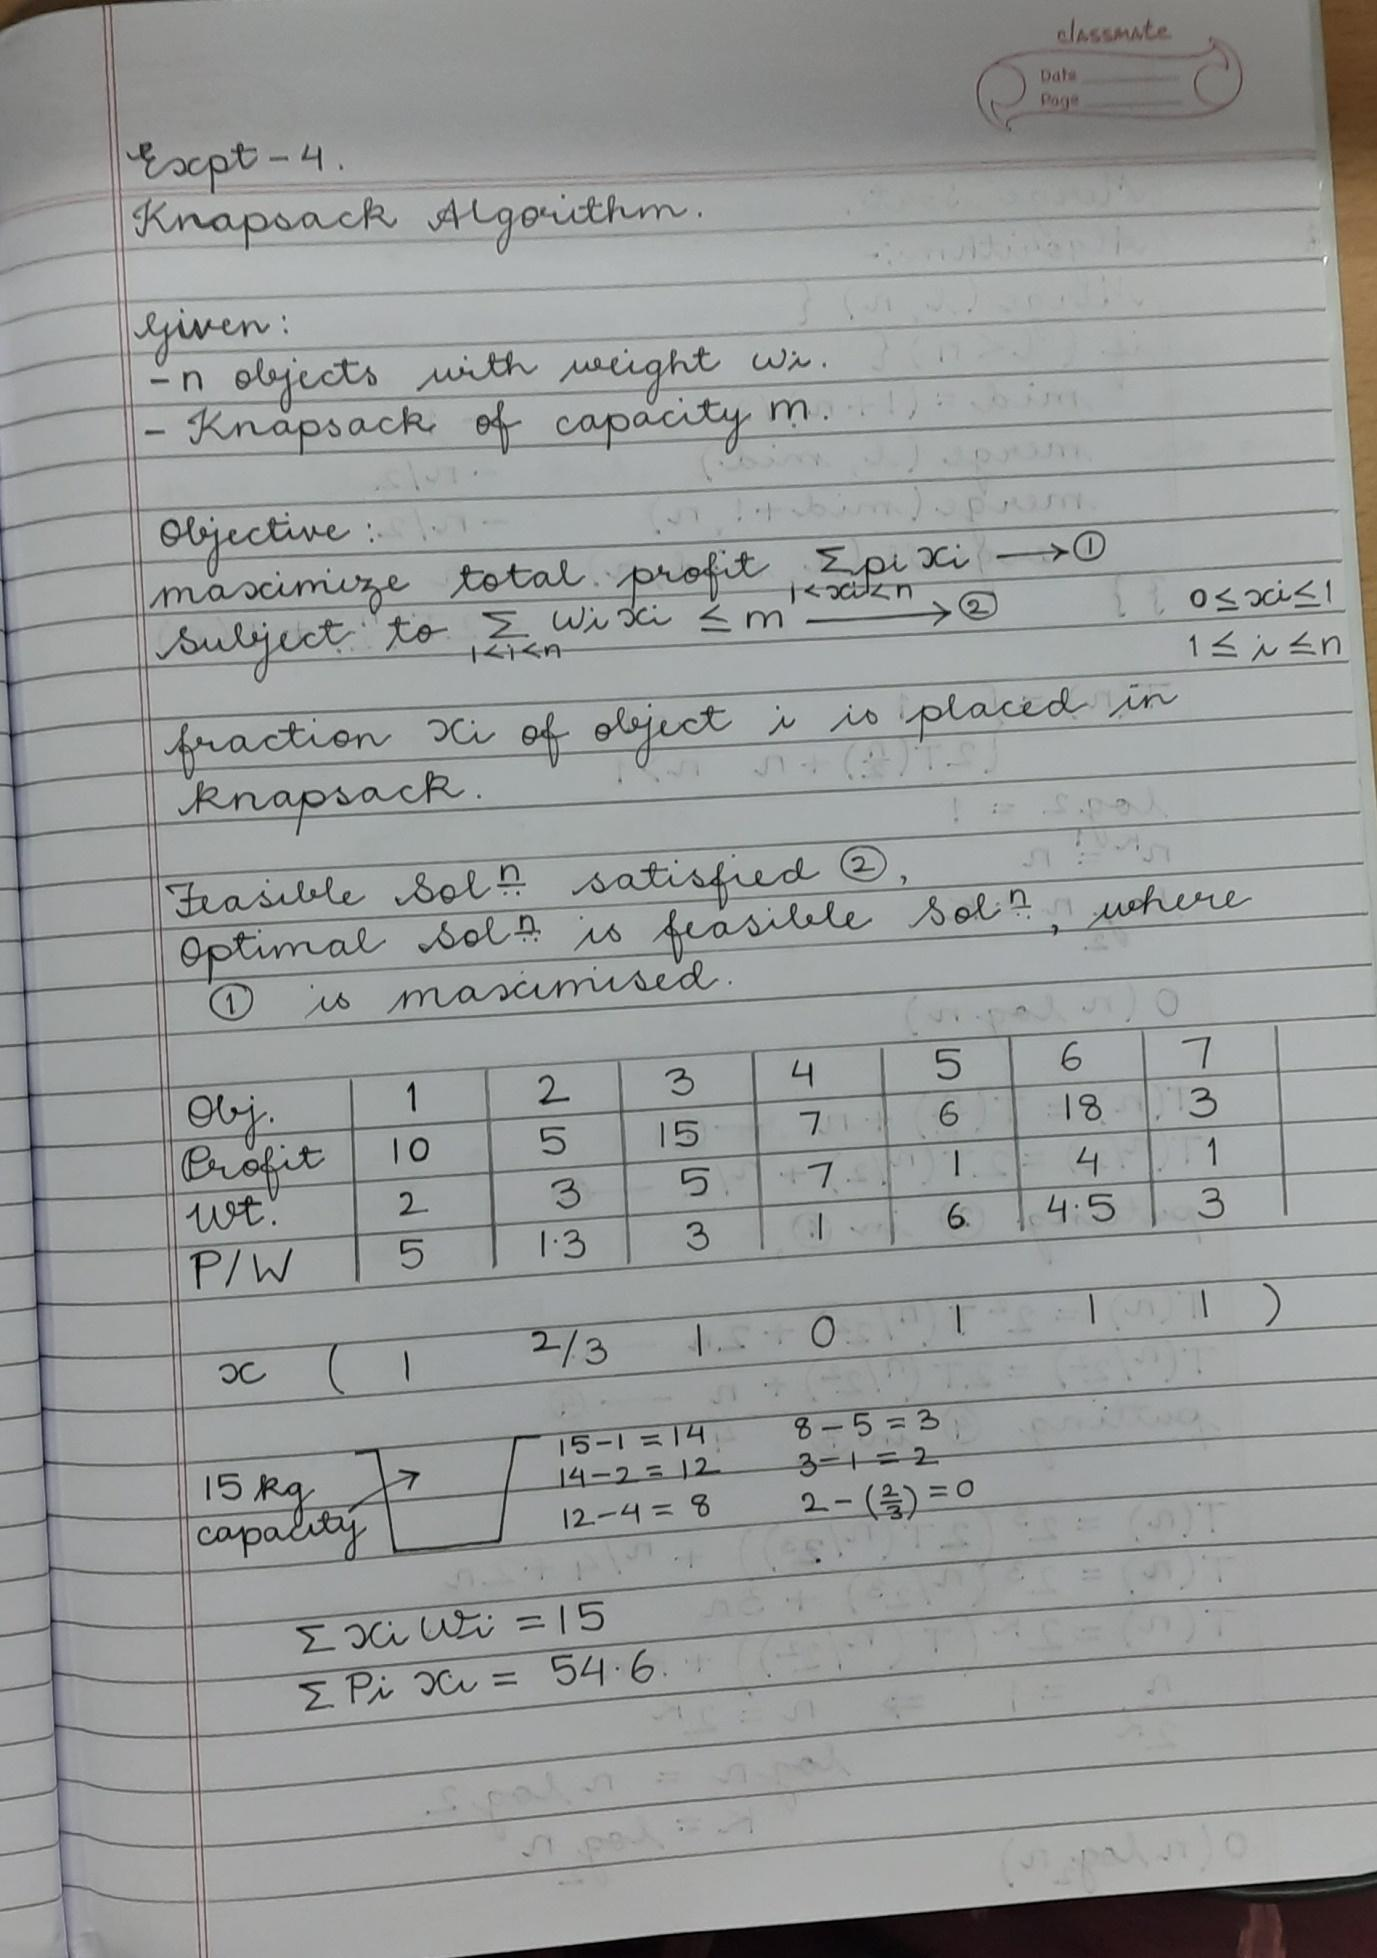 classmate
Date
Page
Expt - 4.
Knapsack Algorithm.
Given:
- n objects with weight wi.
- Knapsack of capacity m.
Objective:
maximize total profit Σ pi xi → ①
1<xi<n
subject to Σ wi xi ≤ m → ② 0≤xi≤1
1<i<n 1≤ i ≤n
fraction xi of object i is placed in
knapsack.
Feasible Solⁿ satisfied ②,
Optimal Solⁿ is feasible Solⁿ, where
① is maximised.
Obj. 1 2 3 4 5 6 7
Profit 10 5 15 7 6 18 3
Wt. 2 3 5 7 1 4 1
P/W 5 1.3 3 1 6 4.5 3
x ( 1 2/3 1 0 1 1 1 )
15-1=14 8-5=3
15 kg 14-2=12 3-1=2
capacity 12-4=8 2-(2/3)=0
Σ xi wi = 15
Σ Pi xi = 54.6